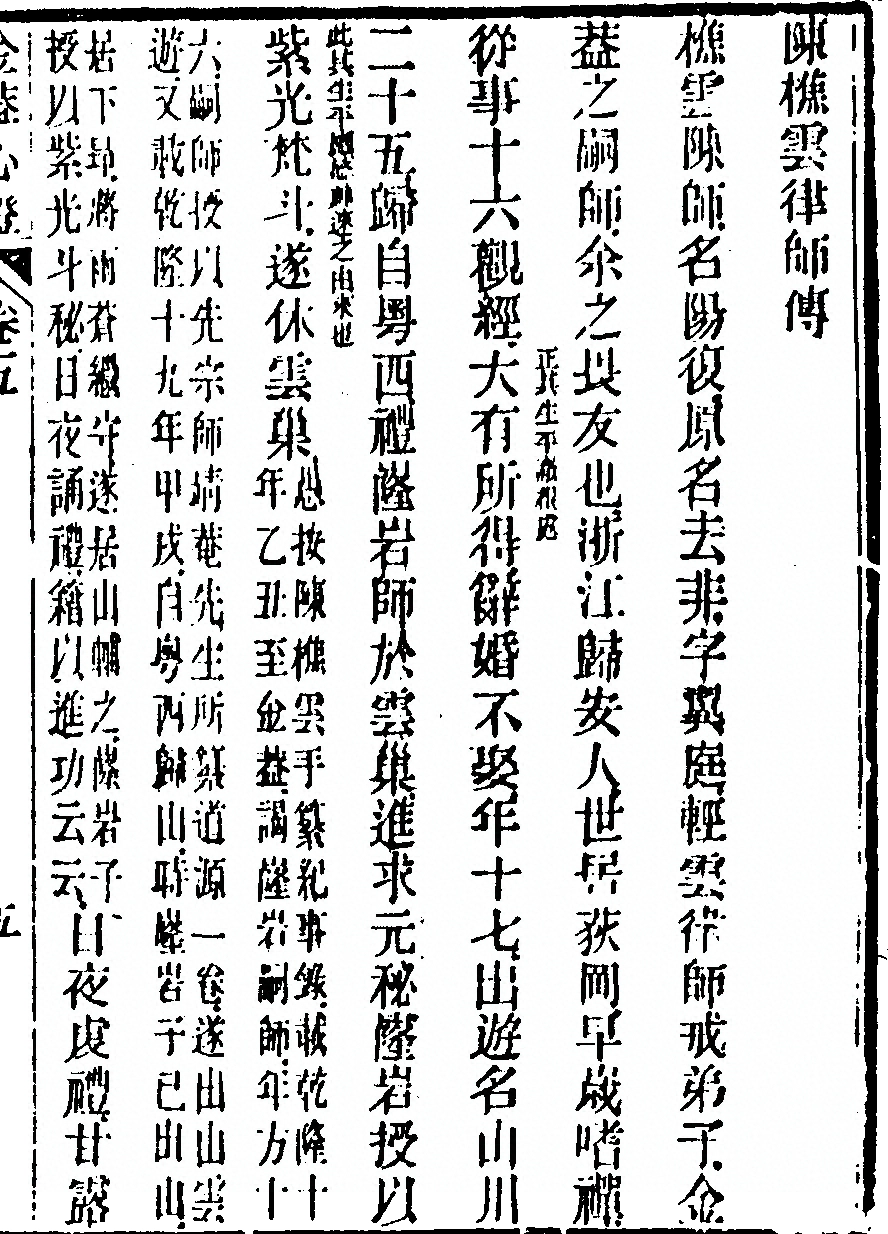 陳樵雲律師傳
樵雲陳師名陽復原名去非字翼庭輕雲律師戒弟子金
蓋之嗣師余之畏友也浙江歸安人世居荻岡早歲嗜禪
從事十六觀經大有所得辭婚不娶年十七出遊名山川
正其生平
二十五歸自粵西禮隆岩師於雲巢進求元秘隆岩授以
此其生平之由來也
紫光梵斗遂休雲巢
懋按陳樵雲手纂紀事錄載乾隆十
年乙丑至金蓋謁隆岩嗣師年方十
六嗣師授以先宗師靖菴先生所纂道源一卷遂出山雲
遊又載乾隆十九年甲戌自粵西歸山時隆岩子已出山
居下昂將雨蒼繼守遂居山輔之隆岩子
授以紫光斗秘日夜誦禮藉以進功云云
日夜虔禮甘露
金蓋心燈
卷五
五